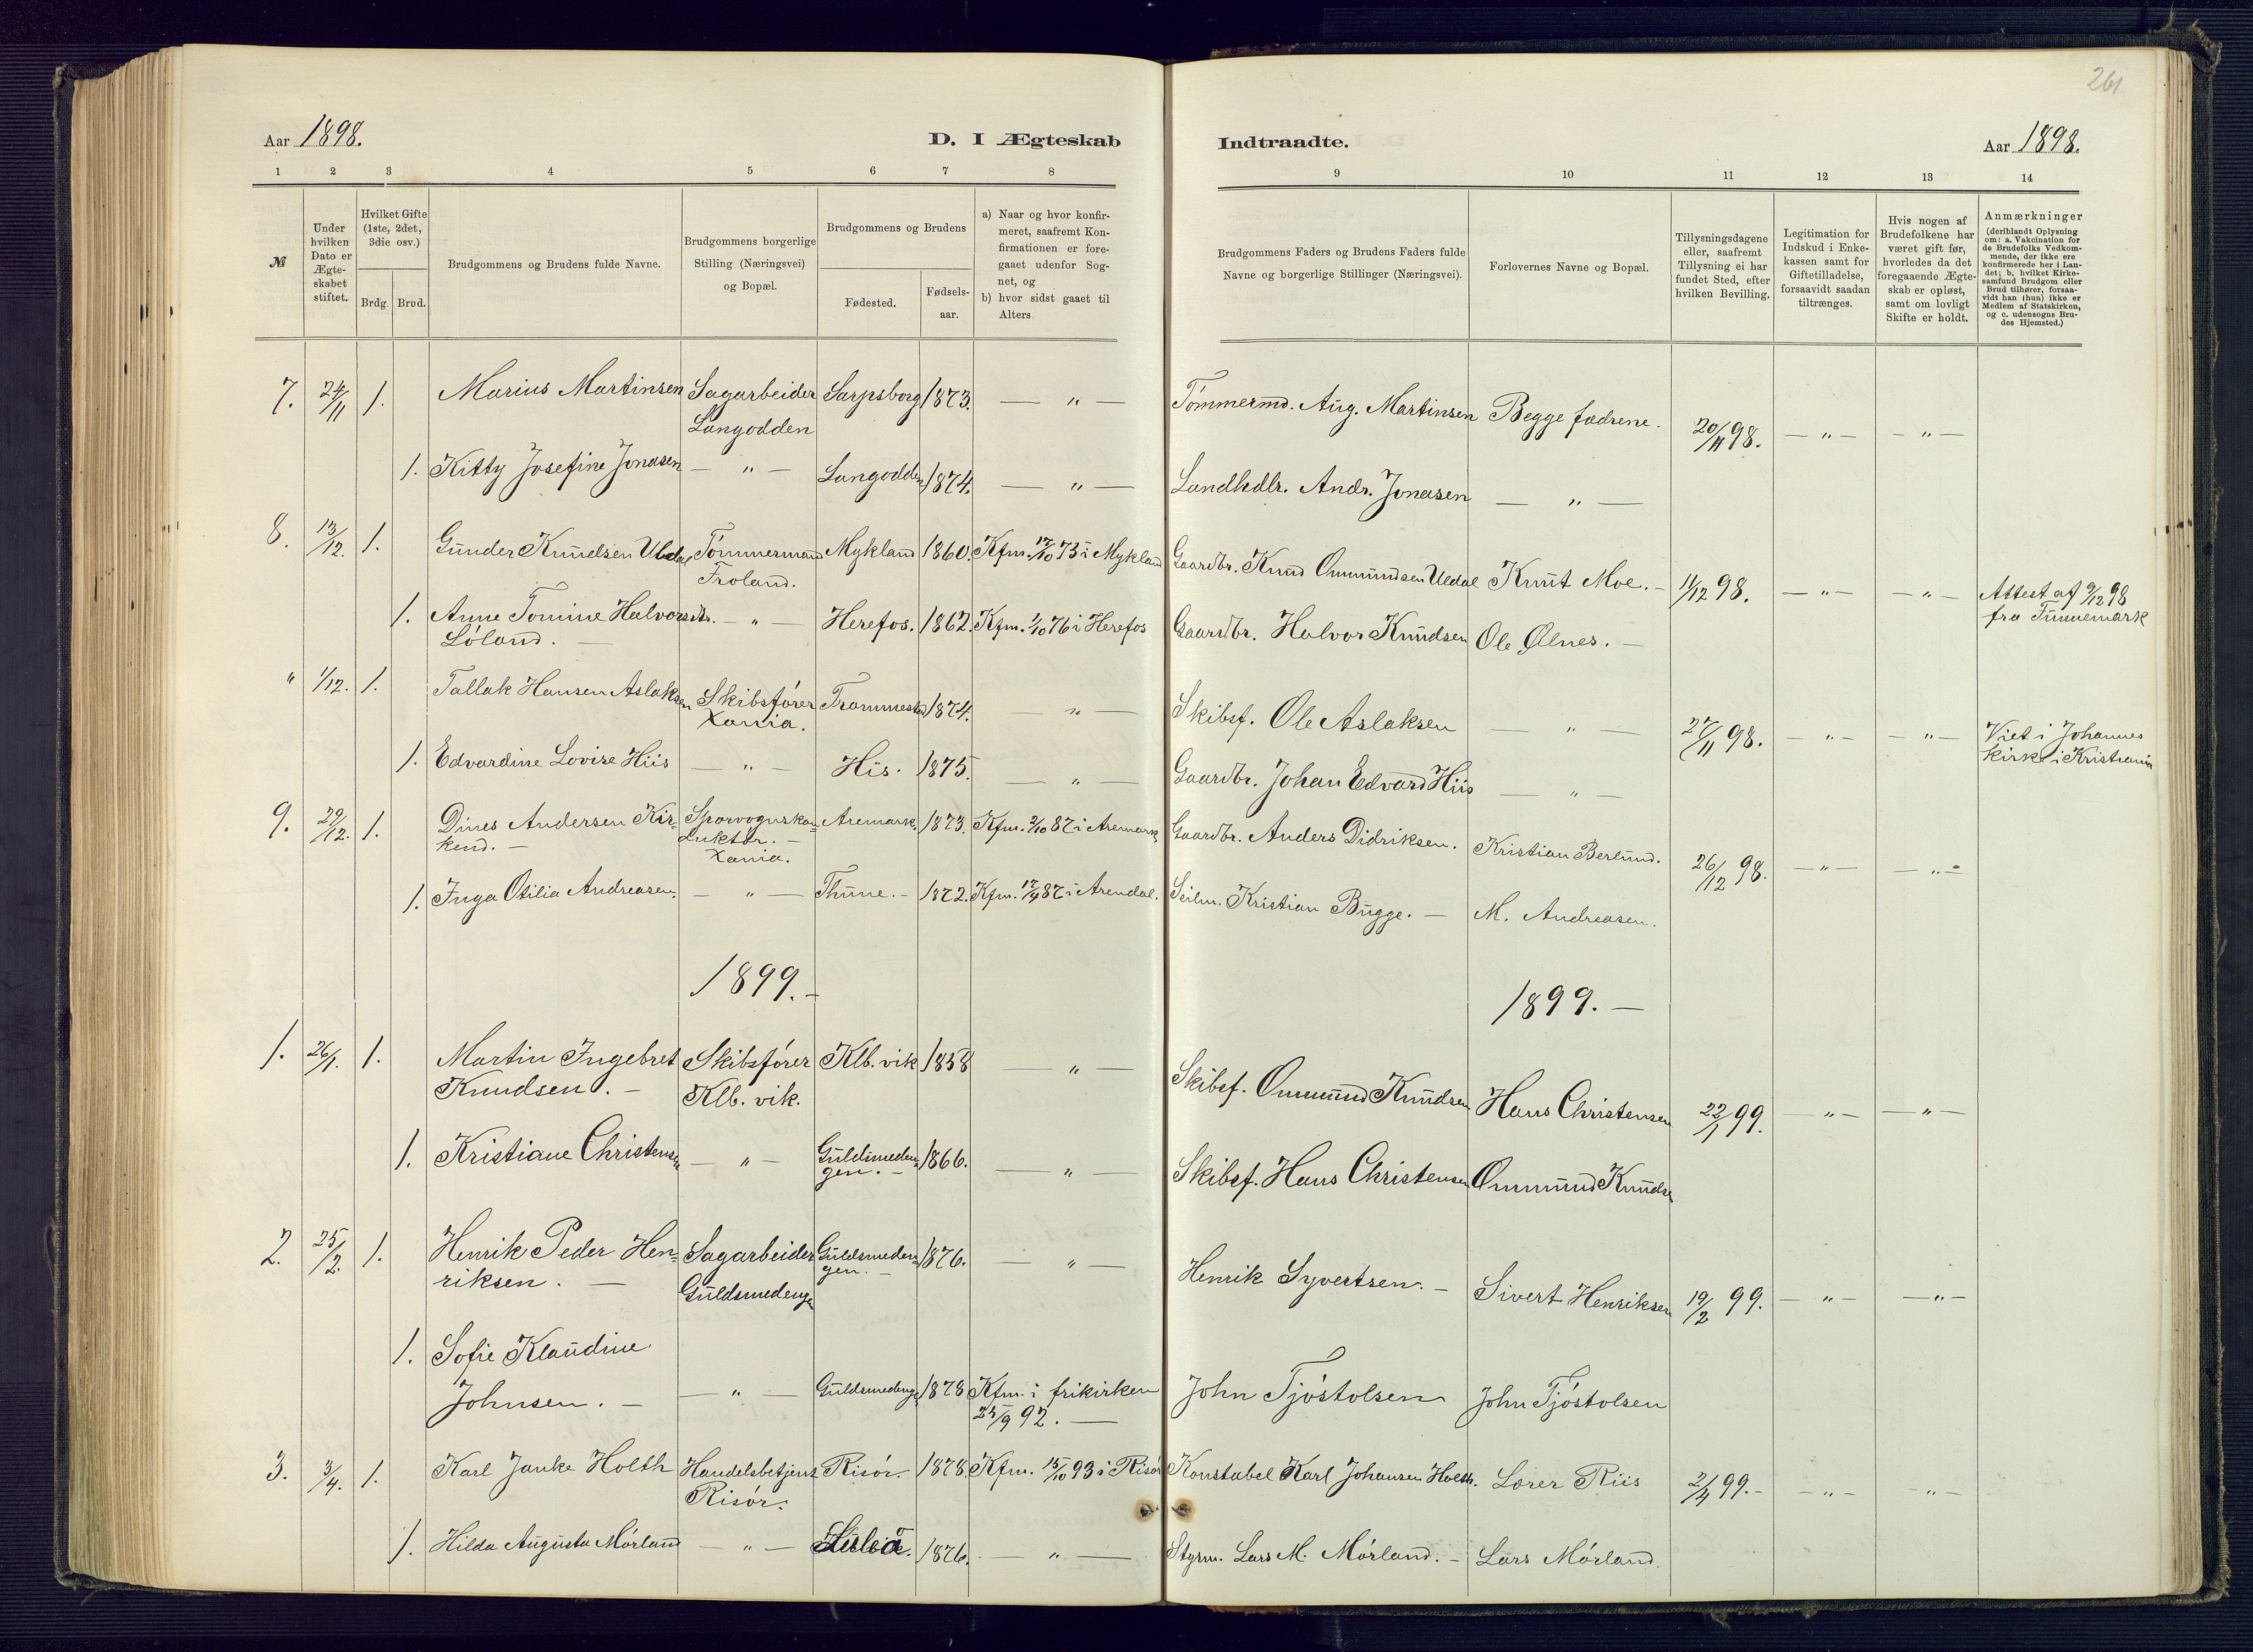 261
Aar 1898.
D. I Ægteskab
Indtraadte.
Aar 1898.
1 2 3 4 5 6 7 8
9 10 11 12 13 14
№
Under hvilken Dato er Ægteskabet stiftet.
Hvilket Gifte (1ste, 2det, 3die osv.)
Brdg. Brud.
Brudgommens og Brudens fulde Navne.
Brudgommens borgerlige Stilling (Næringsvei) og Bopæl.
Brudgommens og Brudens
Fødested.
Fødselsaar.
a) Naar og hvor konfirmeret, saafremt Konfirmationen er foregaaet udenfor Sognet, og
b) hvor sidst gaaet til Alters
Brudgommens Faders og Brudens Faders fulde Navne og borgerlige Stillinger (Næringsvei).
Forlovernes Navne og Bopæl.
Tillysningsdagene eller, saafremt Tillysning ei har fundet Sted, efter hvilken Bevilling.
Legitimation for Indskud i Enkekassen samt for Giftetilladelse, forsaavidt saadan tiltrænges.
Hvis nogen af Brudefolkene har været gift før, hvorledes da det foregaaende Ægteskab er opløst, samt om lovligt Skifte er holdt.
Anmærkninger (deriblandt Oplysning om: a. Vakcination for de Brudefolks Vedkommende, der ikke ere konfirmerede her i Landet; b. hvilket Kirkesamfund Brudgom eller Brud tilhører, forsaavidt han (hun) ikke er Medlem af Statskirken, og c. udensogns Brudes Hjemsted.)
7. 24/11 1. Marius Martinsen Sagarbeider Langodden Sarpsborg 1873. — " — Tømmermd. Aug. Martinsen Begge fædrene. 20/11 98. — " — — " —
1. Kitty Josefine Jonasen — " — Langodden 1874. — " — Landhdlr. Andr. Jonasen — " —
8. 13/12. 1. Gunder Knudsen Uldal Tømmermand Froland. Mykland 1860. Kfm. 12/10 75 i Mykland Gaardbr. Knud Ommundsen Uldal Knut Moe. — 11/12 98. — " — — " — Attest af 9/12 98 fra Tunnemark
1. Anne Tomine Halvorsdtr. Løland. — — " — Herefos. 1862. Kfm. 1/10 76 i Herefos Gaardbr. Halvor Knudsen Ole Ølnes. —
" 1/12. 1. Tallak Hansen Aslaksen Skibsfører Xania. Trommestad 1874. — " — Skibsf. Ole Aslaksen — " — 27/11 98. — " — — " — Viet i Johannes kirke i Kristiania
1. Edvardine Lovise Hiis — " — His. 1875. — " — Gaardbr. Johan Edvard Hiis — " —
9. 29/12. 1. Dines Andersen Kirkend. — Sporvognskonduktør. — Xania. Aremark 1873. Kfm. 2/10 87 i Aremark Gaardbr. Anders Didriksen. Kristian Berlund. 26/12 98. — " — — " —
1. Inga Otilia Andreasen. — " — Thune. — 1872. Kfm. 17/4 87 i Arendal. Seilm. Kristian Bugge. — M. Andreasen.
1899. —
1899. —
1. 26/1. 1. Martin Ingebret Knudsen. — Skibsfører Klb. vik. Klb. vik 1858 — " — Skibsf. Ommund Knudsen Hans Christensen 22/1 99. — " — — " —
1. Kristiane Christensen — " — Guldsmedengen. — 1866. — " — Skibsf. Hans Christensen Ommund Knudsen
2. 25/2. 1. Henrik Peder Henriksen. — Sagarbeider Guldsmedengen Guldsmedengen. — 1876. — " — Henrik Syvertsen. — Sivert Henriksen 19/2 99. — " — — " —
1. Sofie Klaudine Johnsen. — — " — Guldsmedengen 1878 Kfm. i frikirken 25/9 92. — John Tjøstolsen John Tjøstolsen
3. 3/4. 1. Karl Janke Holth Handelsbetjent Risør. Risør. 1878. Kfm. 15/10 93 i Risør Konstabel Karl Johansen Holth. Lærer Riis 2/4 99. — — " — — " —
1. Hilda Augusta Mørland — " — 1876. — " — Styrm. Lars M. Mørland. — Lars Mørland.